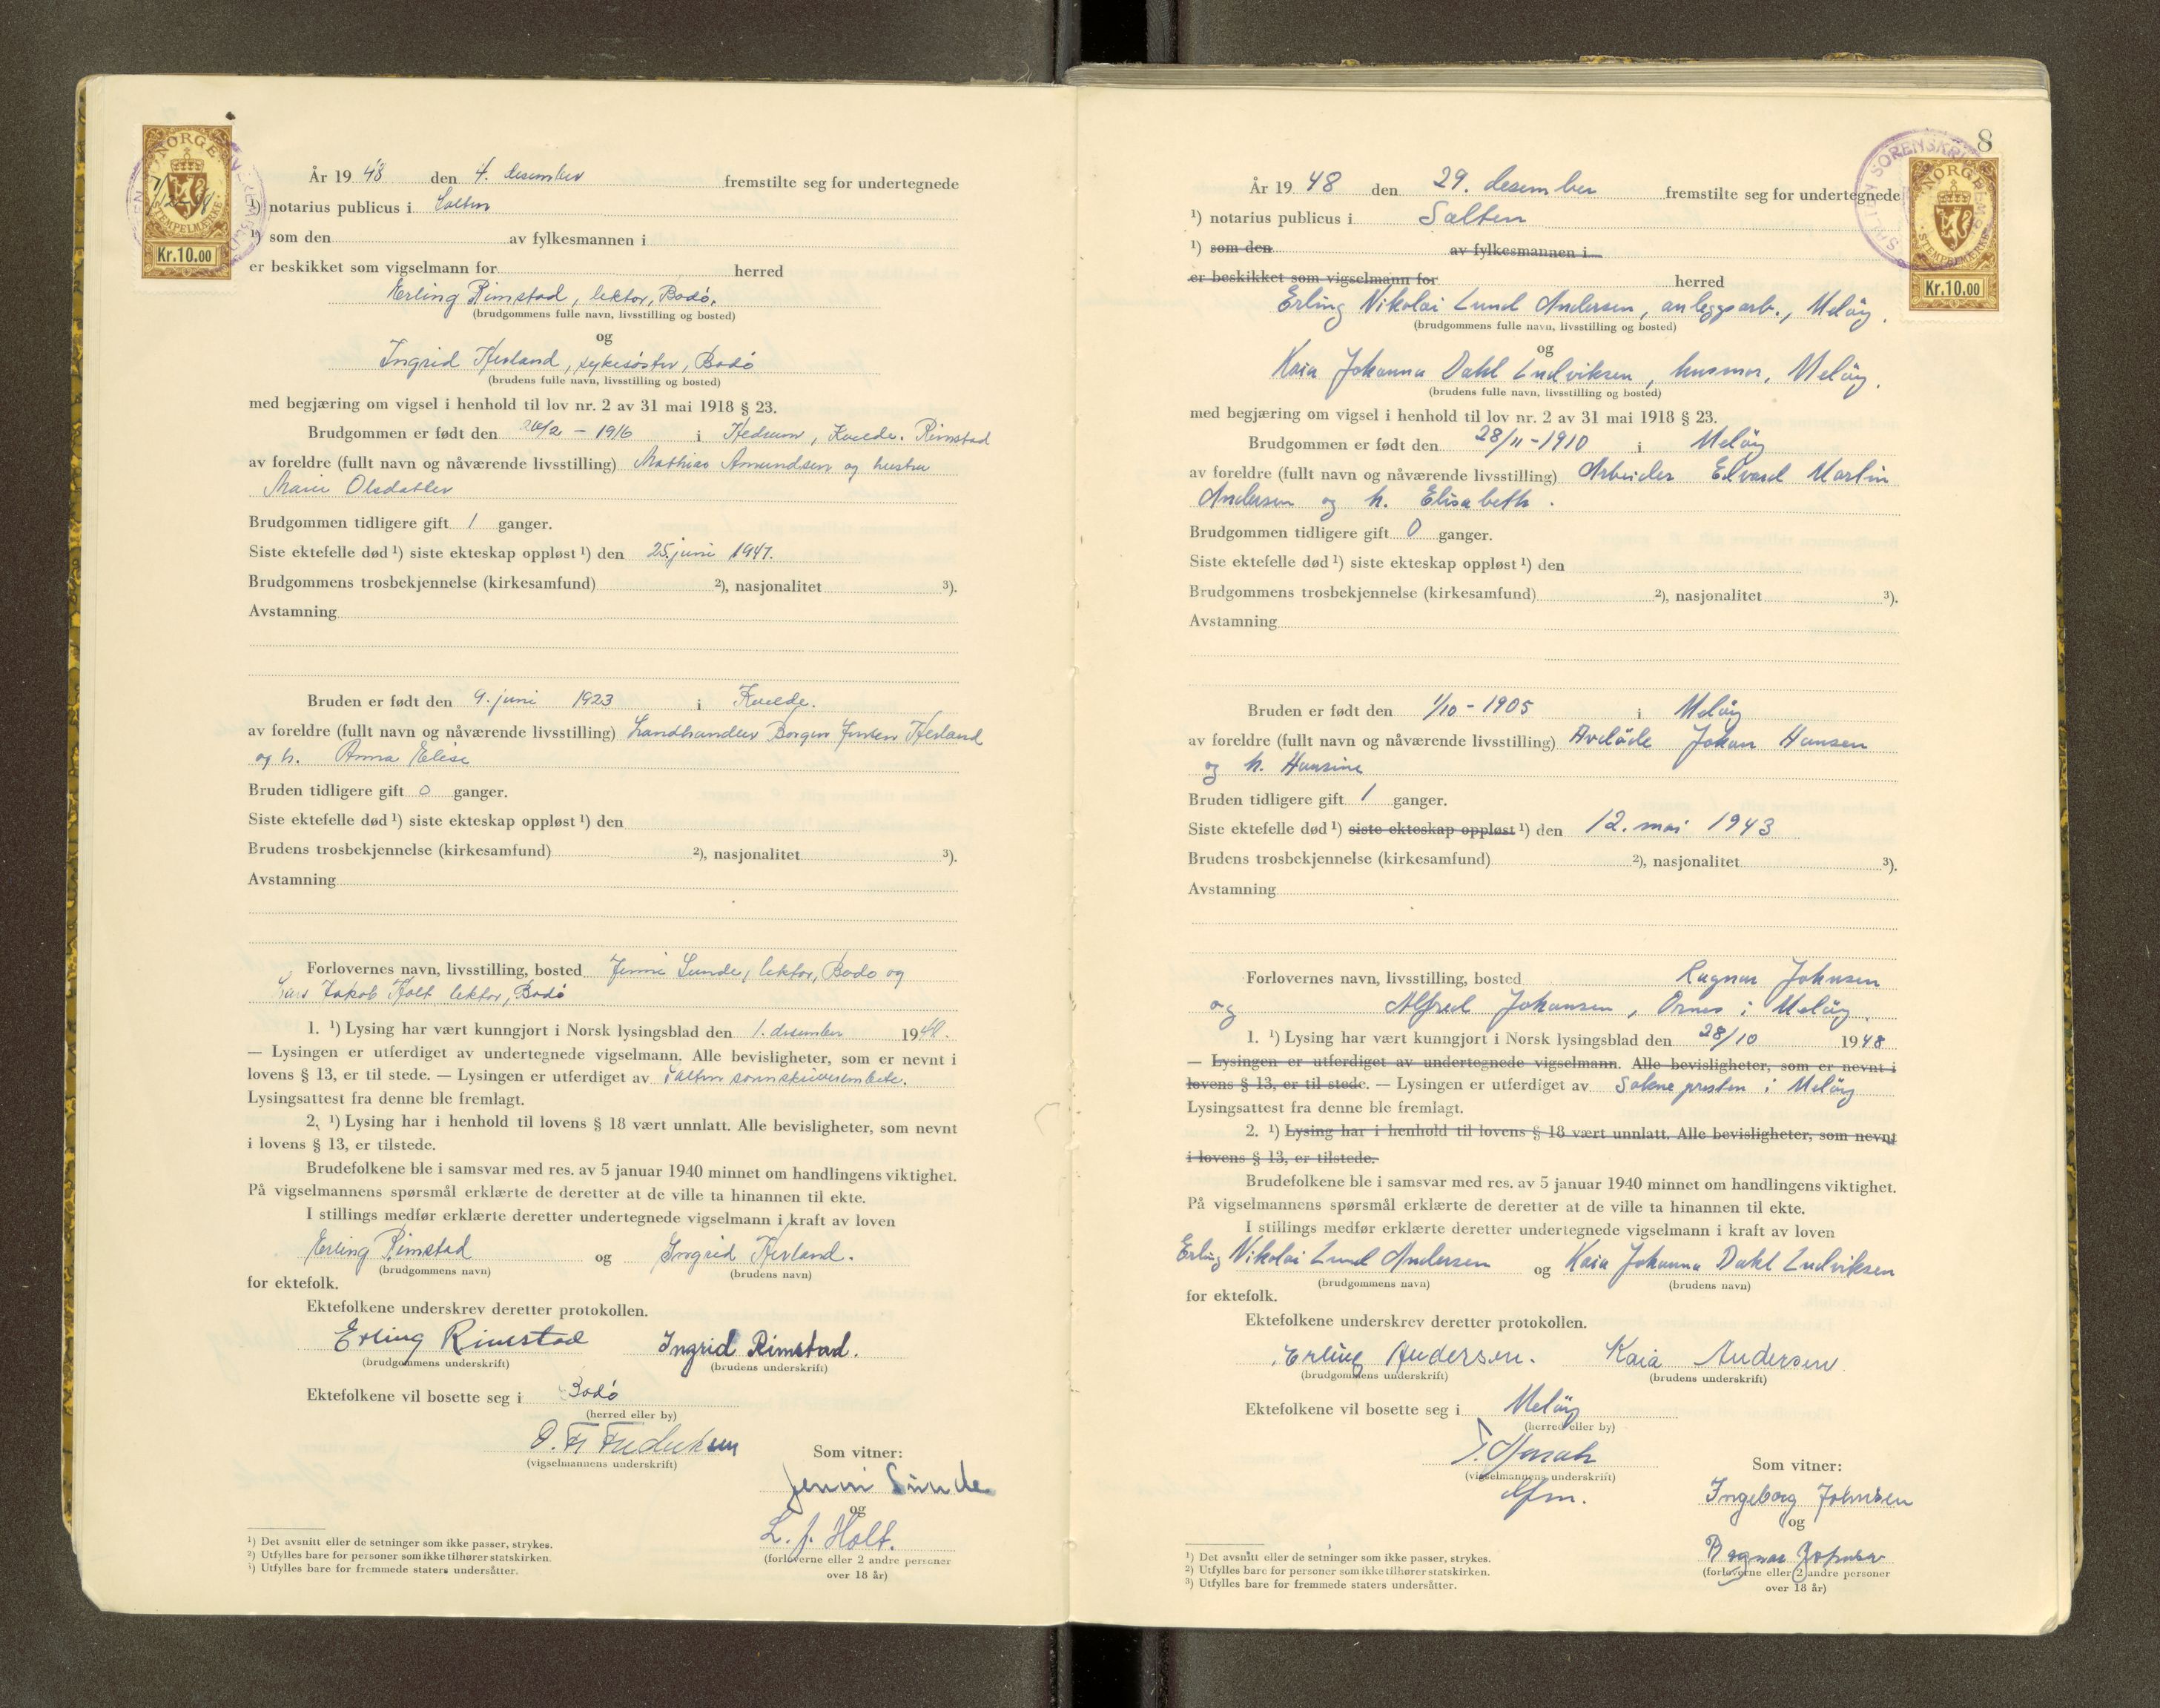 NORGE
STEMPELMERKE
Kr.10.00
År 19 48 den 4. desember fremstilte seg for undertegnede
¹) notarius publicus i Salten
¹) som den av fylkesmannen i
er beskikket som vigselmann for herred
Erling Rimstad, lektor, Bodö.
(brudgommens fulle navn, livsstilling og bosted)
og
Ingrid Herland, sykesöster, Bodö
(brudens fulle navn, livsstilling og bosted)
med begjæring om vigsel i henhold til lov nr. 2 av 31 mai 1918 § 23.
Brudgommen er født den 26/2 - 1916 i Hedrum, Kvelde. Rimstad
av foreldre (fullt navn og nåværende livsstilling) Mathias Amundsen og hustru
Marie Olsdatter
Brudgommen tidligere gift 1 ganger.
Siste ektefelle død ¹) siste ekteskap oppløst ¹) den 25. juni 1947.
Brudgommens trosbekjennelse (kirkesamfund) ²), nasjonalitet ³).
Avstamning
Bruden er født den 9. juni 1923 i Kvelde.
av foreldre (fullt navn og nåværende livsstilling) Landhandler Borger Jensen Herland
og h. Anna Elise
Bruden tidligere gift 0 ganger.
Siste ektefelle død ¹) siste ekteskap oppløst ¹) den
Brudens trosbekjennelse (kirkesamfund) ²), nasjonalitet ³).
Avstamning
Forlovernes navn, livsstilling, bosted Jenni Sunde, lektor, Bodö og
Lars Jakob Holt lektor, Bodö
1. ¹) Lysing har vært kunngjort i Norsk lysingsblad den 1. desember 1948.
— Lysingen er utferdiget av undertegnede vigselmann. Alle bevisligheter, som er nevnt i
lovens § 13, er til stede. — Lysingen er utferdiget av Salten sorenskriverembete.
Lysingsattest fra denne ble fremlagt.
2. ¹) Lysing har i henhold til lovens § 18 vært unnlatt. Alle bevisligheter, som nevnt
i lovens § 13, er tilstede.
Brudefolkene ble i samsvar med res. av 5 januar 1940 minnet om handlingens viktighet.
På vigselmannens spørsmål erklærte de deretter at de ville ta hinannen til ekte.
I stillings medfør erklærte deretter undertegnede vigselmann i kraft av loven
Erling Rimstad og Ingrid Herland.
(brudgommens navn) (brudens navn)
for ektefolk.
Ektefolkene underskrev deretter protokollen.
Erling Rimstad Ingrid Rimstad.
(brudgommens underskrift) (brudens underskrift)
Ektefolkene vil bosette seg i Bodö
(herred eller by)
O. Fr Fredriksen
(vigselmannens underskrift)
Som vitner:
Jenni Sunde
og
L. J. Holt.
(forloverne eller 2 andre personer
over 18 år)
¹) Det avsnitt eller de setninger som ikke passer, strykes.
²) Utfylles bare for personer som ikke tilhører statskirken.
³) Utfylles bare for fremmede staters undersåtter.
8
NORGE
STEMPELMERKE
Kr.10.00
År 19 48 den 29. desember fremstilte seg for undertegnede
¹) notarius publicus i Salten
¹) som den av fylkesmannen i
er beskikket som vigselmann for herred
Erling Nikolai Lund Andersen, anleggsarb., Melöy.
(brudgommens fulle navn, livsstilling og bosted)
og
Kaia Johanna Dahl Ludviksen, husmor, Melöy.
(brudens fulle navn, livsstilling og bosted)
med begjæring om vigsel i henhold til lov nr. 2 av 31 mai 1918 § 23.
Brudgommen er født den 28/11-1910 i Melöy
av foreldre (fullt navn og nåværende livsstilling) Arbeider Edvard Martin
Andersen og h. Elisabeth.
Brudgommen tidligere gift 0 ganger.
Siste ektefelle død ¹) siste ekteskap oppløst ¹) den
Brudgommens trosbekjennelse (kirkesamfund) ²), nasjonalitet ³).
Avstamning
Bruden er født den 1/10 - 1905 i Melöy
av foreldre (fullt navn og nåværende livsstilling) Avdöde Johan Hansen
og h. Hansine
Bruden tidligere gift 1 ganger.
Siste ektefelle død ¹) siste ekteskap oppløst ¹) den 12. mai 1943
Brudens trosbekjennelse (kirkesamfund) ²), nasjonalitet ³).
Avstamning
Forlovernes navn, livsstilling, bosted Ragnar Johnsen
og Alfred Johansen, Ornes i Melöy.
1. ¹) Lysing har vært kunngjort i Norsk lysingsblad den 28/10 1948
— Lysingen er utferdiget av undertegnede vigselmann. Alle bevisligheter, som er nevnt i
lovens § 13, er til stede. — Lysingen er utferdiget av Soknepresten i Melöy
Lysingsattest fra denne ble fremlagt.
2. ¹) Lysing har i henhold til lovens § 18 vært unnlatt. Alle bevisligheter, som nevnt
i lovens § 13, er tilstede.
Brudefolkene ble i samsvar med res. av 5 januar 1940 minnet om handlingens viktighet.
På vigselmannens spørsmål erklærte de deretter at de ville ta hinannen til ekte.
I stillings medfør erklærte deretter undertegnede vigselmann i kraft av loven
Erling Nikolai Lund Andersen og Kaia Johanna Dahl Ludviksen
(brudgommens navn) (brudens navn)
for ektefolk.
Ektefolkene underskrev deretter protokollen.
Erling Andersen. Kaia Andersen
(brudgommens underskrift) (brudens underskrift)
Ektefolkene vil bosette seg i Melöy
(herred eller by)
(vigselmannens underskrift)
Som vitner:
Ingeborg Johnsen
og
Ragnar Johnsen
(forloverne eller 2 andre personer
over 18 år)
¹) Det avsnitt eller de setninger som ikke passer, strykes.
²) Utfylles bare for personer som ikke tilhører statskirken.
³) Utfylles bare for fremmede staters undersåtter.